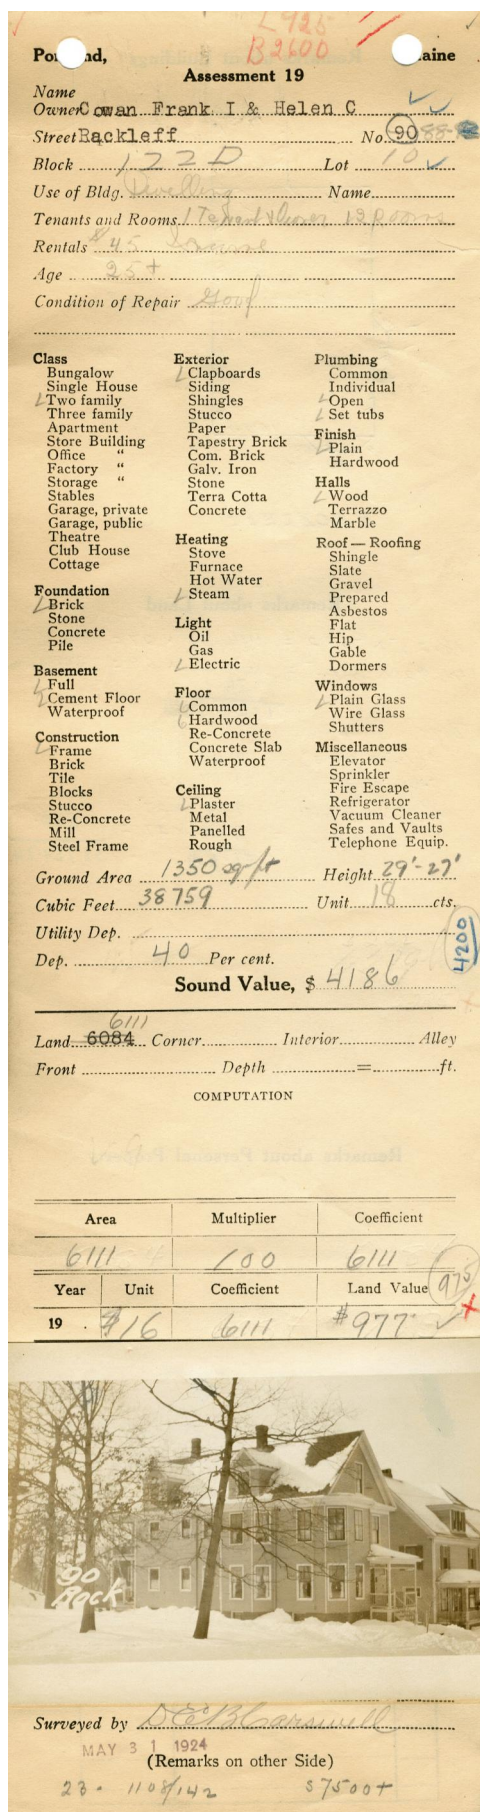 L 925
B 2600
Po nd, aine
Assessment 19
Name
Owner Cowan Frank I & Helen C
Street Rackleff No. 90 88-
Block 122D Lot 10
Use of Bldg. Dwelling Name
Tenants and Rooms 1 Tenant & Owner 12 Rooms
Rentals $45
Age 25+
Condition of Repair Good
Class
Bungalow
Single House
Two family
Three family
Apartment
Store Building
Office "
Factory "
Storage "
Stables
Garage, private
Garage, public
Theatre
Club House
Cottage
Foundation
Brick
Stone
Concrete
Pile
Basement
Full
Cement Floor
Waterproof
Construction
Frame
Brick
Tile
Blocks
Stucco
Re-Concrete
Mill
Steel Frame
Exterior
Clapboards
Siding
Shingles
Stucco
Paper
Tapestry Brick
Com. Brick
Galv. Iron
Stone
Terra Cotta
Concrete
Heating
Stove
Furnace
Hot Water
Steam
Light
Oil
Gas
Electric
Floor
Common
Hardwood
Re-Concrete
Concrete Slab
Waterproof
Ceiling
Plaster
Metal
Panelled
Rough
Plumbing
Common
Individual
Open
Set tubs
Finish
Plain
Hardwood
Halls
Wood
Terrazzo
Marble
Roof — Roofing
Shingle
Slate
Gravel
Prepared
Asbestos
Flat
Hip
Gable
Dormers
Windows
Plain Glass
Wire Glass
Shutters
Miscellaneous
Elevator
Sprinkler
Fire Escape
Refrigerator
Vacuum Cleaner
Safes and Vaults
Telephone Equip.
Ground Area 1350 sq-ft Height 29'-27'
Cubic Feet 38759 Unit 18 cts.
Utility Dep.
4200
Dep. 40 Per cent.
Sound Value, $ 4186
6111
Land 6084 Corner Interior Alley
Front Depth = ft.
COMPUTATION
Area Multiplier Coefficient
6111 100 6111
Year Unit Coefficient Land Value 975
19 . $16 6111 $977
90
Rack
Surveyed by D E B Carswell
MAY 31 1924
(Remarks on other Side)
23- 1108/142 $7500+